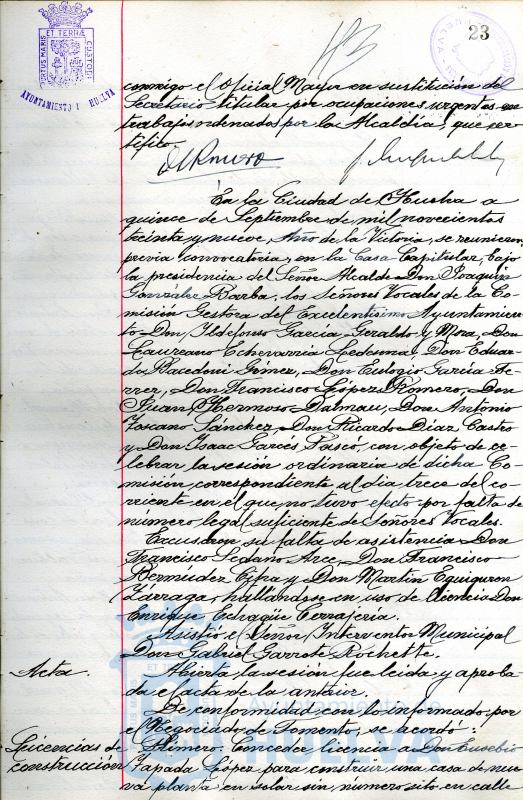 PORTUS MARIS ET TERRÆ CUSTODIA
AYUNTAMIENTO HUELVA
23
conmigo el Oficial Mayor en sustitución del
Secretario titular por ocupaciones urgentes en
trabajos ordenados por la Alcaldía, que cer-
tifico.
En la Ciudad de Huelva a
quince de Septiembre de mil novecientos
treinta y nueve, Año de la Victoria, se reunieron,
previa convocatoria, en la Casa Capitular, bajo
la presidencia del Señor Alcalde Don Joaquín
González Barba, los Señores Vocales de la Co-
misión Gestora del Excelentísimo Ayuntamien-
to Don Ildefonso García Geraldo y Mora, Don
Laureano Echevarría Ledesma, Don Eduar-
do Racedoni Gómez, Don Eulogio García He-
rrer, Don Francisco López Romero, Don
Juan Hermoso Dalmau, Don Antonio
Toscano Sánchez, Don Ricardo Díaz Castro
y Don Isaac Garcés Foiscó, con objeto de ce-
lebrar la sesión ordinaria de dicha Co-
misión, correspondiente al día trece del co-
rriente en el que no tuvo efecto por falta de
número legal suficiente de Señores Vocales.
Excusaron su falta de asistencia Don
Francisco Sedano Arce, Don Francisco
Bermudez Cifra y Don Martín Eguiguren
Zárraga, hallándose en uso de licencia Don
Enrique Echagüe Cerrajería.
Asistió el Señor Interventor Municipal
Don Gabriel Garrote Rochette.
Acta. Abierta la sesión fue leída y aproba-
da el acta de la anterior.
De conformidad con lo informado por
el Negociado de Fomento, se acordó:
Licencias de Primero: Conceder licencia a Don Eusebio
construcción Zapada López para construir una casa de nue-
va planta en solar sin número sito en calle
Ayuntamiento de
HUELVA